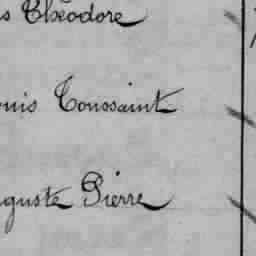 s Théodore
ouis Toussaint
guste Pierre